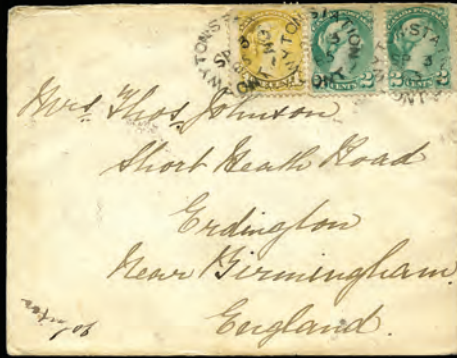 Mrs. Thos. Johnson
Short Heath Road
Erdington
Near Birmingham.
England.
2 CENTS 2
2 CENTS 2